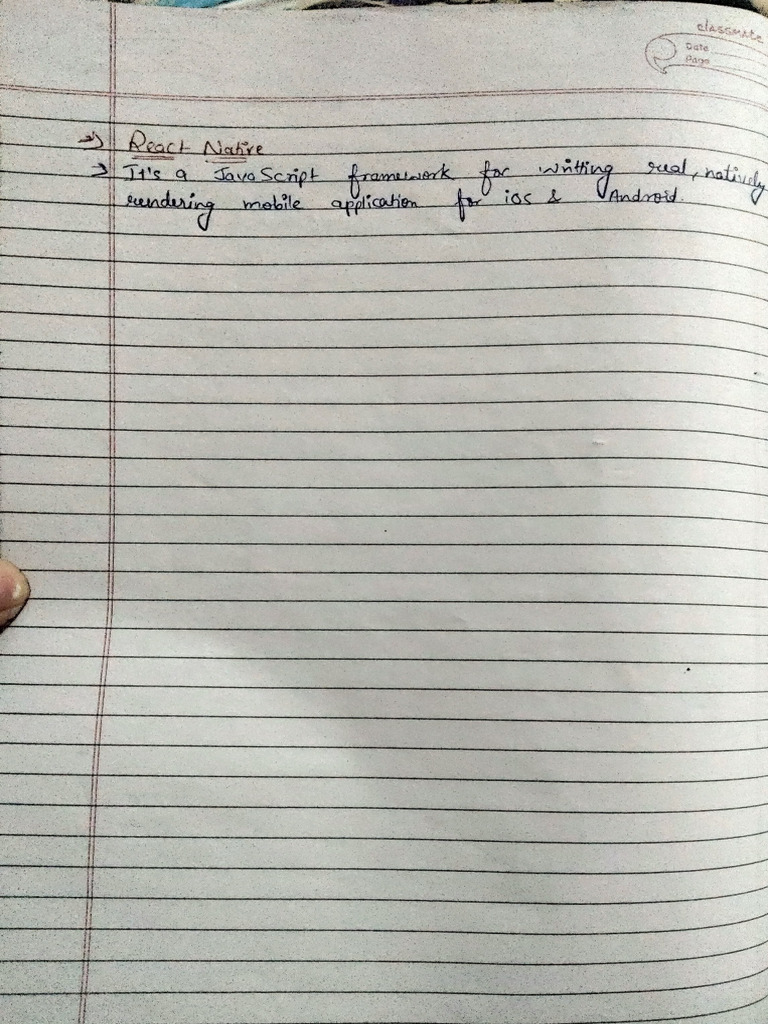 classmate
Date
Page
⇒ React Native
→ It's a JavaScript framework for writting real, natively
rendering mobile application for ios & Android.